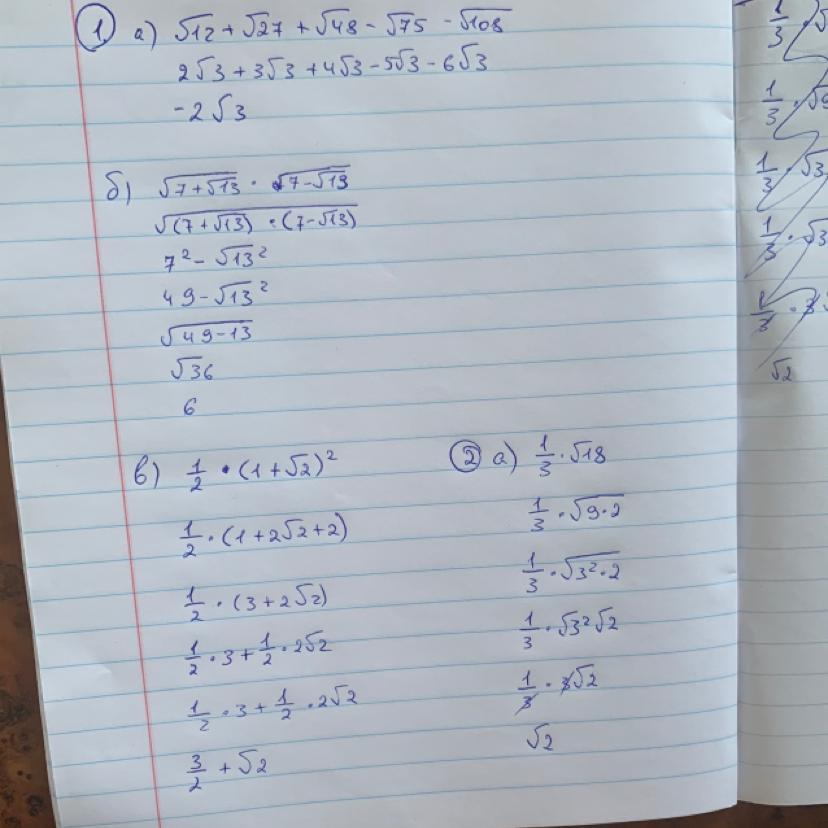 1 а) √12 + √27 + √48 - √75 - √108
2√3 + 3√3 + 4√3 - 5√3 - 6√3
-2√3
б) √(7+√13) · √(7-√13)
√((7+√13) · (7-√13))
7² - √13²
49 - √13²
√(49-13)
√36
6
в) 1/2 · (1+√2)²
1/2 · (1+2√2+2)
1/2 · (3+2√2)
1/2 · 3 + 1/2 · 2√2
1/2 · 3 + 1/2 · 2√2
3/2 + √2
2 а) 1/3 · √18
1/3 · √(9·2)
1/3 · √(3²·2)
1/3 · √3²√2
1/3 · 3√2
√2
1/3
1/3 · √9
1/3 · √3
1/3 · √3
1/3 · 3
√2